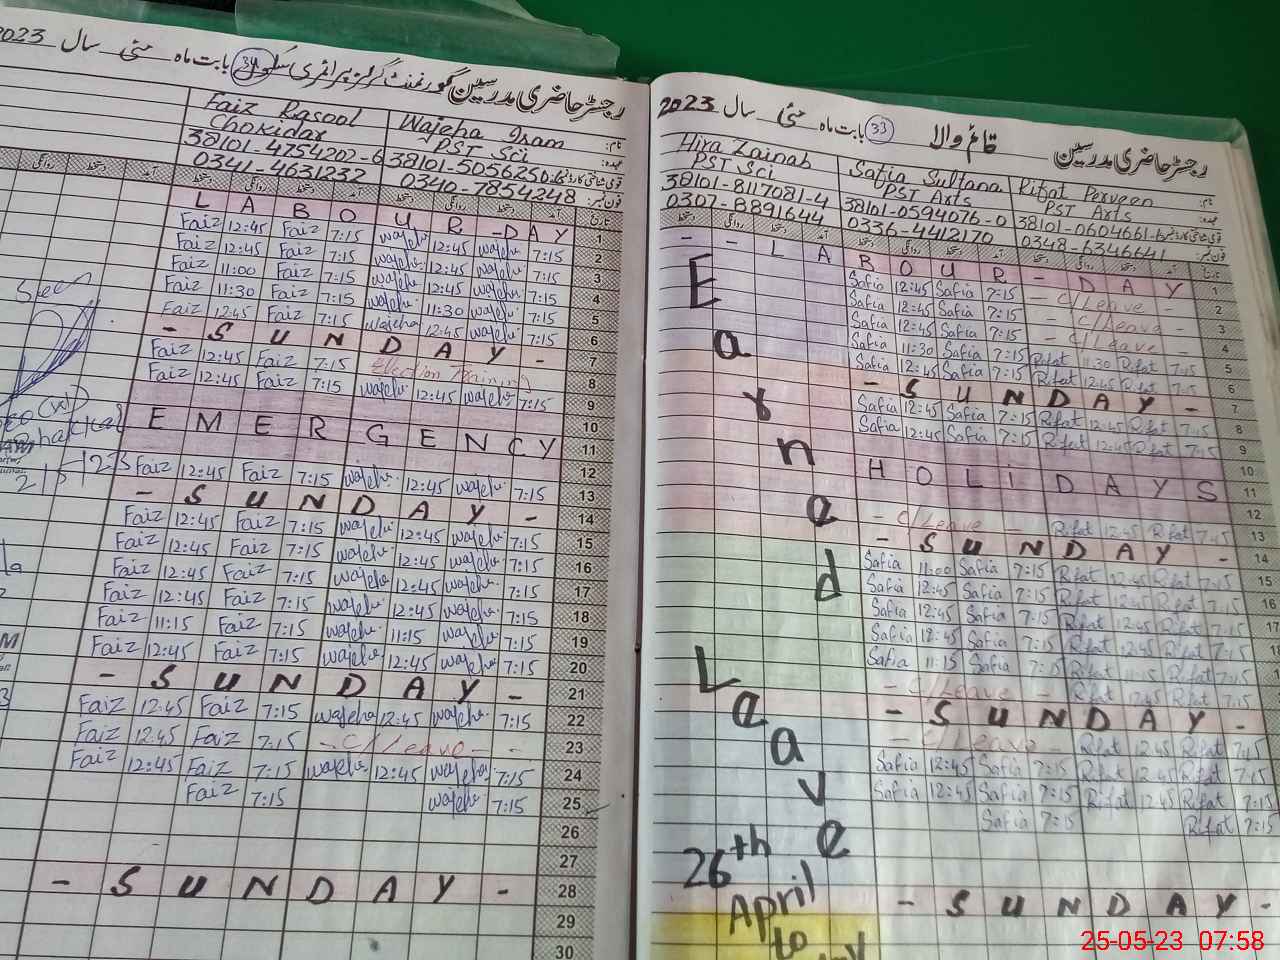 رجسٹر حاضری مدرسین گورنمنٹ گرلز پرائمری سکول 34 بابت ماہ مئی سال 2023
Faiz Rasool
Chokidar
38101-4754202-6
0341-4631232
Wajeha Iram
PST Sci
38101-5056250
0340-7854248
نام:
عہدہ:
قومی شناختی کارڈ نمبر
فون نمبر:
L A B O U R - D A Y 1
Faiz 12:45 Faiz 7:15 Wajeha 12:45 Wajeha 7:15 2
Faiz 12:45 Faiz 7:15 Wajeha 12:45 Wajeha 7:15 3
Faiz 11:00 Faiz 7:15 Wajeha 12:45 Wajeha 7:15 4
Faiz 11:30 Faiz 7:15 Wajeha 11:30 Wajeha 7:15 5
Faiz 12:45 Faiz 7:15 Wajeha 12:45 Wajeha 7:15 6
- S U N D A Y - 7
Faiz 12:45 Faiz 7:15 Election Training 8
Faiz 12:45 Faiz 7:15 Wajeha 12:45 Wajeha 7:15 9
10
E M E R G E N C Y 11
12
Faiz 12:45 Faiz 7:15 Wajeha 12:45 Wajeha 7:15 13
- S U N D A Y - 14
Faiz 12:45 Faiz 7:15 Wajeha 12:45 Wajeha 7:15 15
Faiz 12:45 Faiz 7:15 Wajeha 12:45 Wajeha 7:15 16
Faiz 12:45 Faiz 7:15 Wajeha 12:45 Wajeha 7:15 17
Faiz 12:45 Faiz 7:15 Wajeha 12:45 Wajeha 7:15 18
Faiz 11:15 Faiz 7:15 Wajeha 11:15 Wajeha 7:15 19
Faiz 12:45 Faiz 7:15 Wajeha 12:45 Wajeha 7:15 20
- S U N D A Y - 21
Faiz 12:45 Faiz 7:15 Wajeha 12:45 Wajeha 7:15 22
Faiz 12:45 Faiz 7:15 - C/Leave - - 23
Faiz 12:45 Faiz 7:15 Wajeha 12:45 Wajeha 7:15 24
Faiz 7:15 Wajeha 7:15 25
26
27
- S U N D A Y - 28
29
30
رجسٹر حاضری مدرسین قائم والا 33 بابت ماہ مئی سال 2023
Hira Zainab
PST Sci
38101-8117081-4
0307-8891644
Safia Sultana
PST Arts
38101-0594076-0
0336-4412170
Rifat Perveen
PST Arts
38101-0604661-6
0348-6346641
نام:
عہدہ:
قومی شناختی کارڈ نمبر
فون نمبر:
- - L A B O U R - D A Y 1
Safia 12:45 Safia 7:15 - C/Leave - 2
Safia 12:45 Safia 7:15 - C/Leave - 3
Safia 12:45 Safia 7:15 - C/Leave - 4
Safia 11:30 Safia 7:15 Rifat 11:30 Rifat 7:15 5
Safia 12:45 Safia 7:15 Rifat 12:45 Rifat 7:15 6
- S U N D A Y - 7
Safia 12:45 Safia 7:15 Rifat 12:45 Rifat 7:15 8
Safia 12:45 Safia 7:15 Rifat 12:45 Rifat 7:15 9
10
H O L i D A Y S 11
12
- C/Leave - Rifat 12:45 Rifat 7:45 13
- S U N D A Y - 14
Safia 11:00 Safia 7:15 Rifat 12:45 Rifat 7:15 15
Safia 12:45 Safia 7:15 Rifat 12:45 Rifat 7:15 16
Safia 12:45 Safia 7:15 Rifat 12:45 Rifat 7:15 17
Safia 12:45 Safia 7:15 Rifat 12:45 Rifat 7:15
Safia 11:15 Safia 7:15 Rifat 11:15 Rifat 7:15
- C/Leave - Rifat 12:45 Rifat 7:15
- S U N D A Y -
- C/Leave - Rifat 12:45 Rifat 7:15
Safia 12:45 Safia 7:15 Rifat 12:45 Rifat 7:15
Safia 12:45 Safia 7:15 Rifat 12:45 Rifat 7:15
Safia 7:15 Rifat 7:15
- S U N D A Y -
Earned
Leave
26th
April
to
25-05-23 07:58